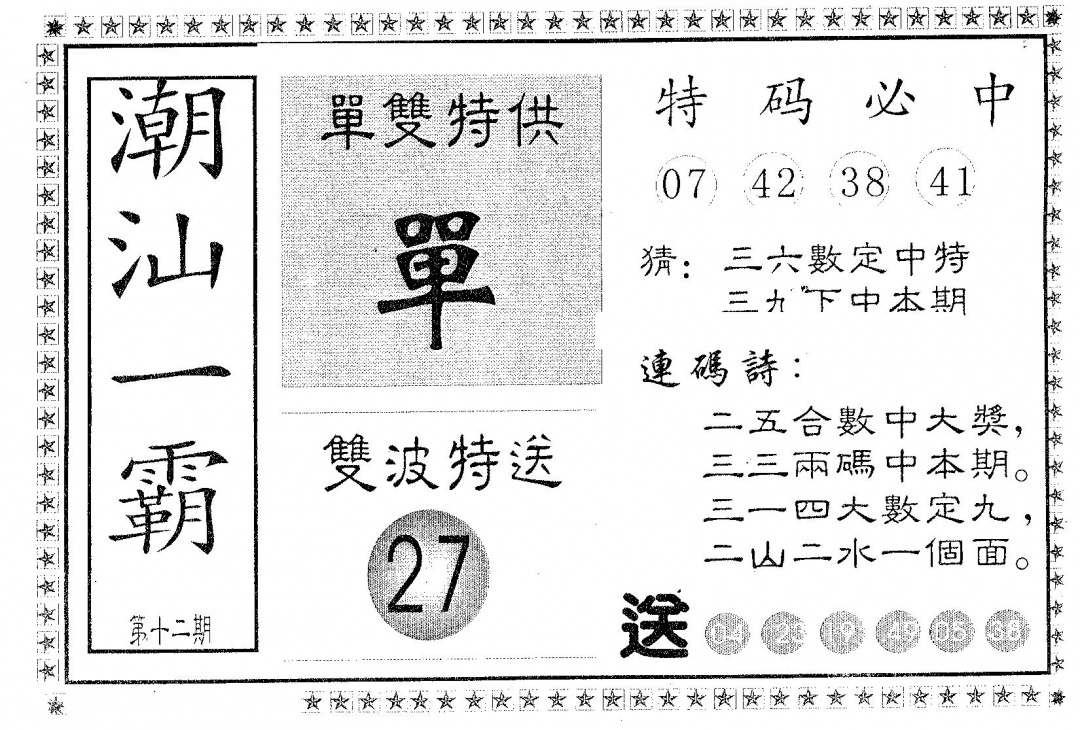 潮汕一霸
第十二期
單雙特供
單
雙波特送
27
特码必中
07 42 38 41
猜：三六數定中特
三九下中本期
連碼詩：
二五合數中大獎，
三三兩碼中本期。
三一四大數定九，
二山二水一個面。
送 04 23 19 49 05 38